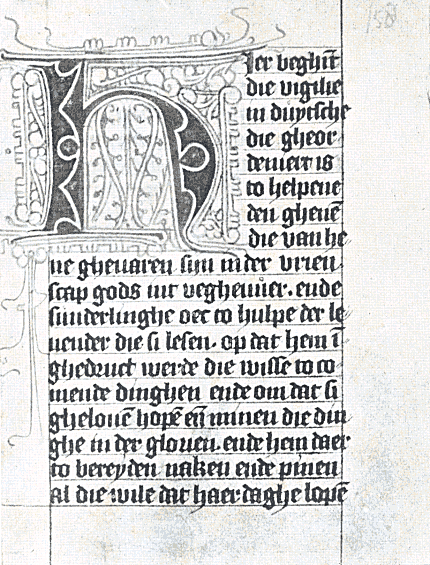 158
Hier beghīt
die vigilie
in duytsche
die gheor
deniert is
to helpene
den ghenē
die van he
ne ghevaren sijn in der vrien
scap gods int veghevuer. ende
sunderlinghe oec to hulpe der le
vender die si lesen. op dat hem ī
ghedruct werde die wisse to co
mende dinghen ende om dat si
ghelovē hopē eñ minen die din
ghe in der gloven. ende hem daer
to bereyden waken ende pinen
al die wile dat haer daghe lopē